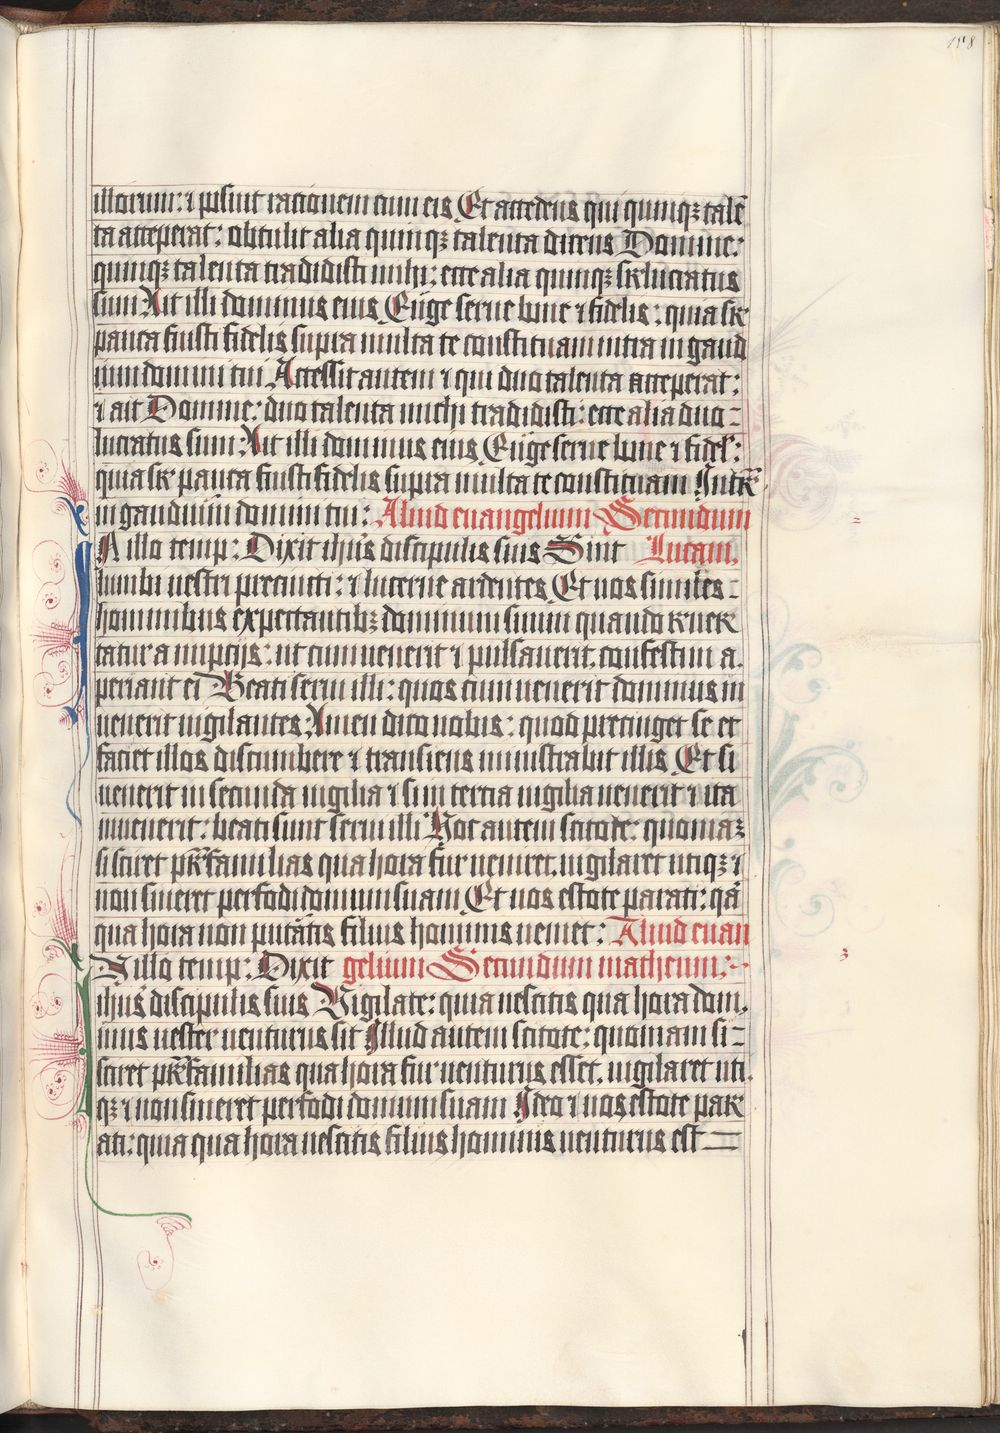 158
illorum: ⁊ p̄suit racionem cum eis Et accedens qui quinqꝫ talē
ta acceperat: obtulit alia quinqꝫ talenta dicens Domine:
quinqꝫ talenta tradidisti mihi: ecce alia quinqꝫ suꝑlucratus
sum Ait illi dominus eius Euge serue bone ⁊ fidelis: quia suꝑ
pauca fuisti fidelis supra multa te constituam intra in gaud
ium domini tui Accessit autem ⁊ qui duo talenta acceperat:
⁊ ait Domine: duo talenta michi tradidisti: ecce alia duo-
lucratus sum Ait illi dominus eius Euge serue bone ⁊ fidel̄:
quia suꝑ pauca fuisti fidelis supra multa te constituam Intra
in gaudium domini tui: Aliud euangelium Secundum
N illo temp: Dixit ihūs discipulis suis Sint Lucam.
lumbi uestri precincti: ⁊ lucerne ardentes Et uos similes-
hominibus expectantibꝫ dominum suum quando reuer
tatur a nupcijs: ut cum uenerit ⁊ pulsauerit. confestim a.
periant ei Beati serui illi: quos cum uenerit dominus in
uenerit uigilantes: Amen dico uobis: quod precinget se et
faciet illos discumbere ⁊ transiens ministrabit illis Et si
uenerit in secunda uigilia ⁊ si in tercia uigilia uenerit ⁊ ita
inuenerit: beati sunt serui illi Hoc autem scitote: quoniaꝫ
si sciret pr̄familias qua hora fur ueniret. uigilaret utiqꝫ ⁊
non sineret perfodi domum suam Et uos estote parati: qā
qua hora non putātis filius hominis ueniet: Aliud euan
N illo temp: Dixit gelium Secundum matheum:-
ihūs discipulis suis Vigilate: quia nescitis qua hora dom.
inus uester uenturus sit Illud autem scitote: quoniam si-
sciret pr̄familias qua hora fur uenturus esset. uigilaret uti.
qꝫ ⁊ non sineret perfodi domum suam Ideo ⁊ uos estote par
ati: quia qua hora nescitis filius hominis uenturus est